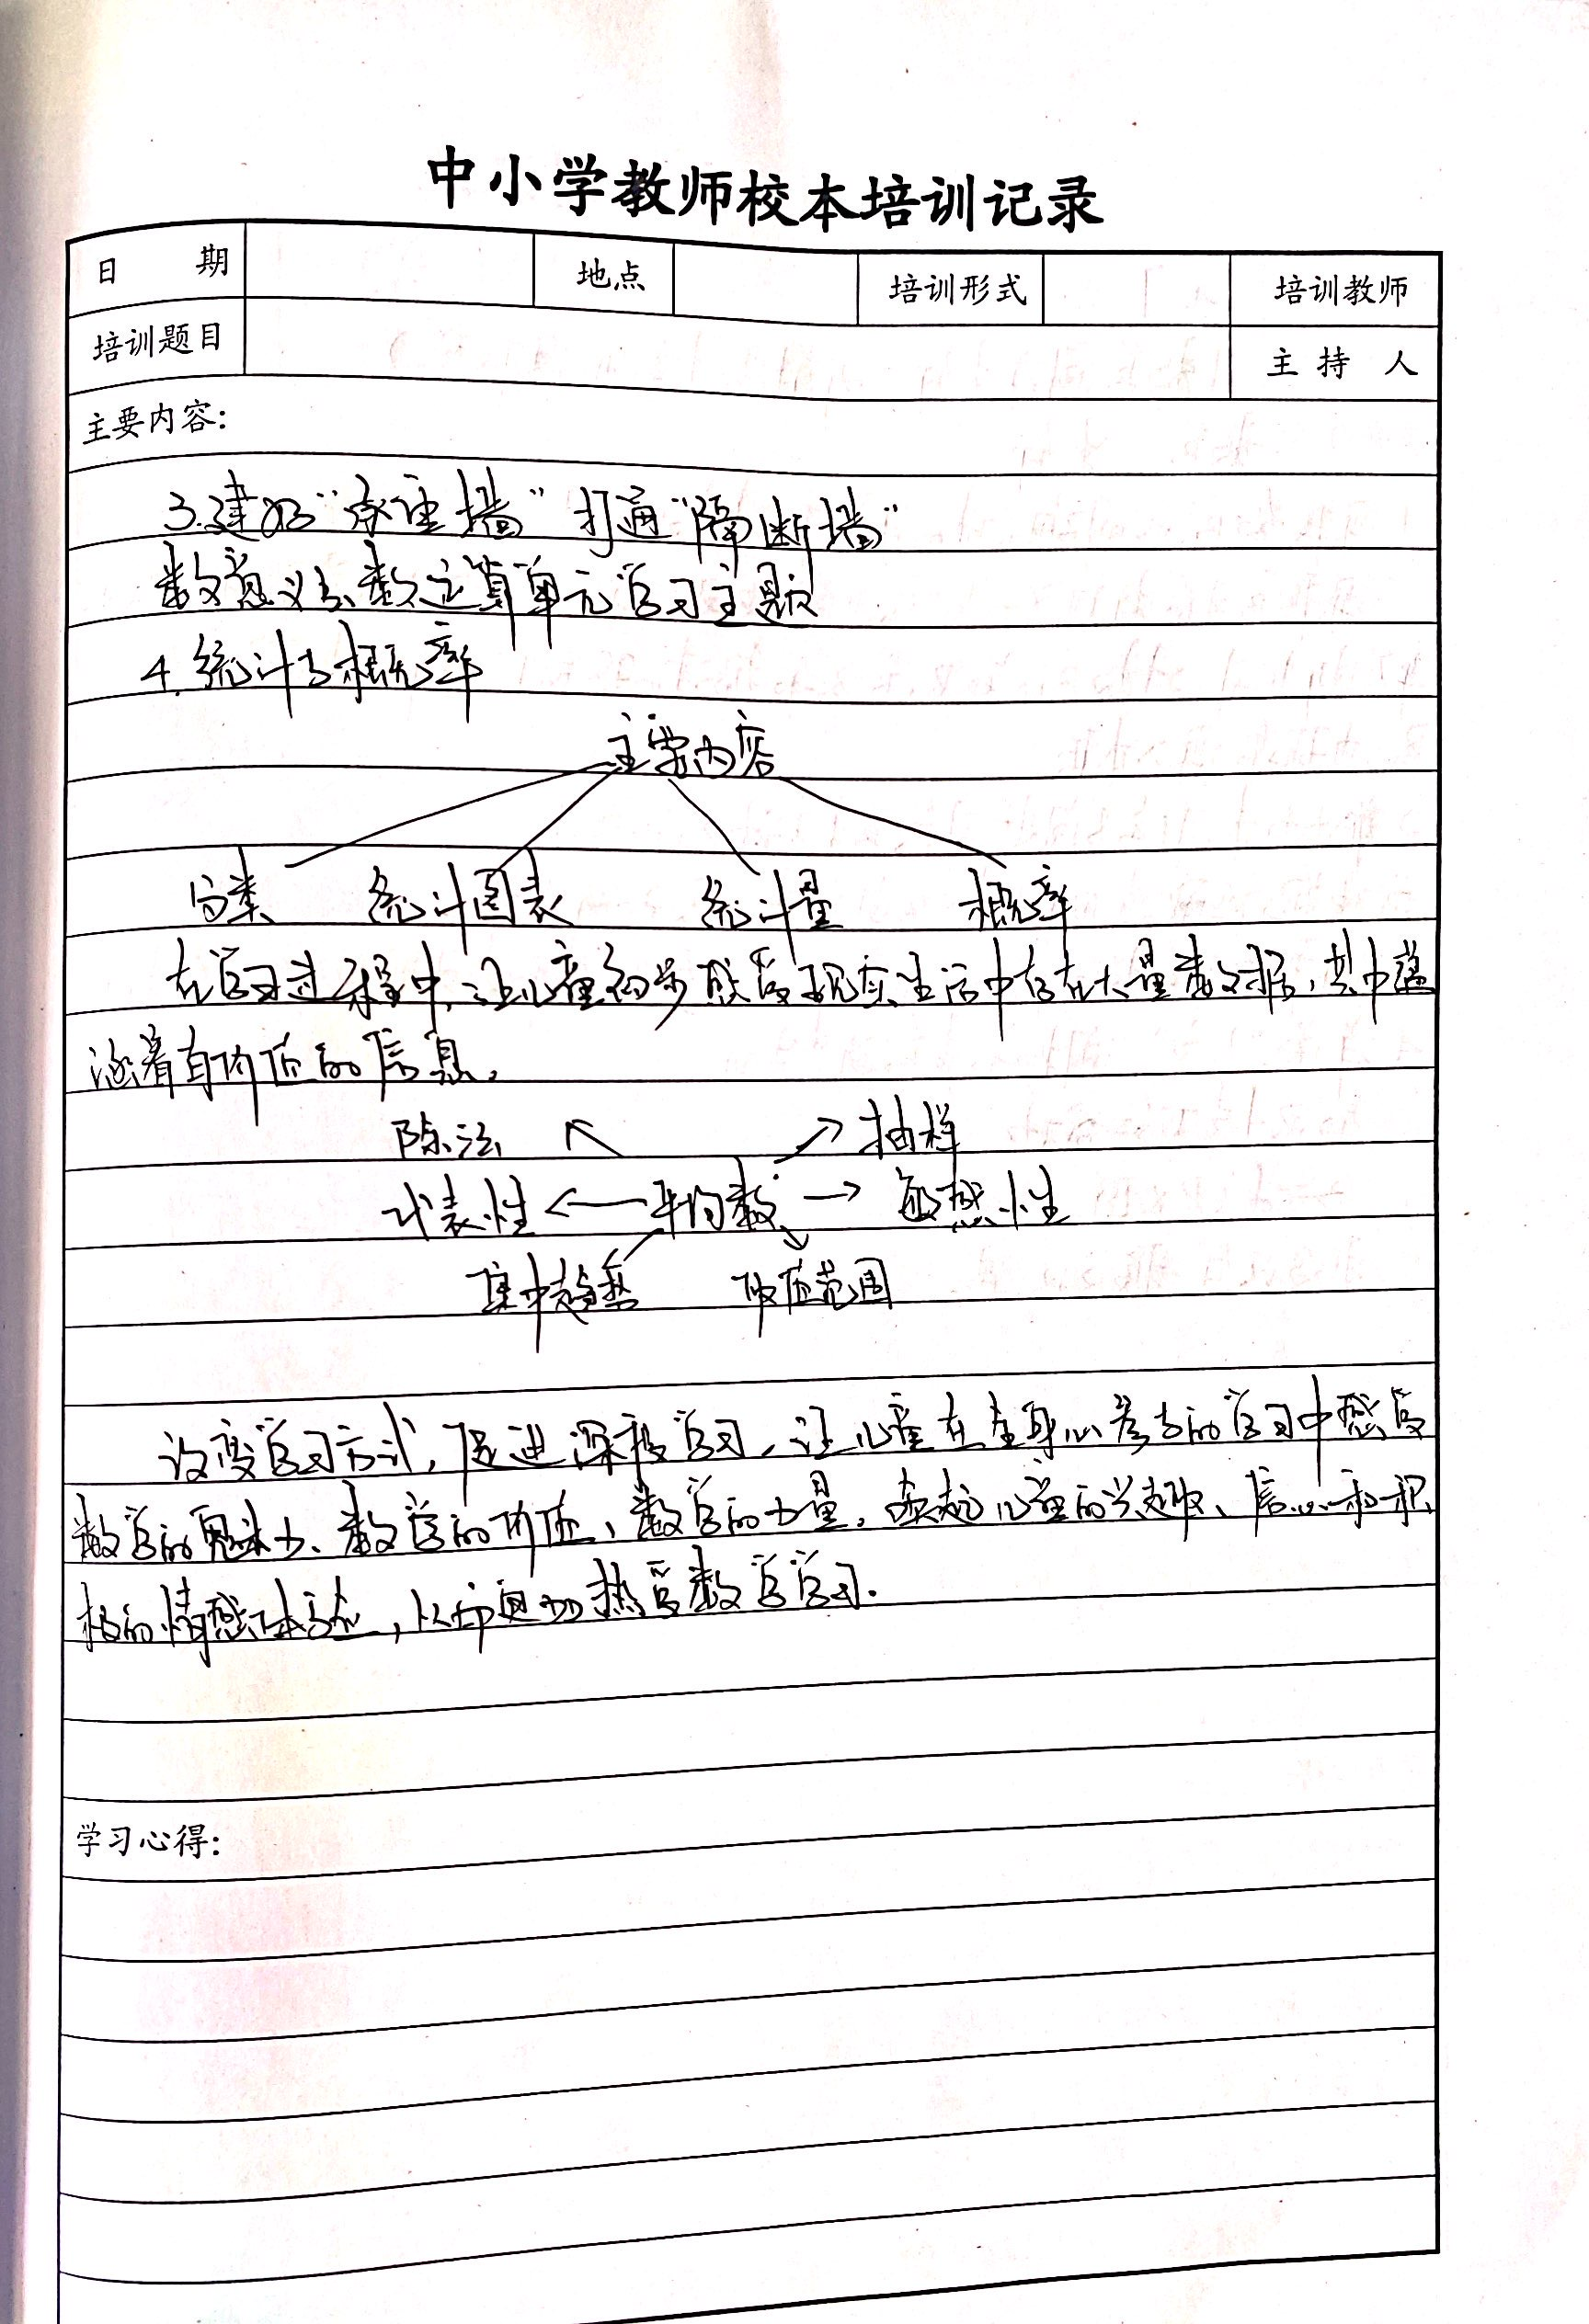 中小学教师校本培训记录
日 期 地点 培训形式 培训教师
培训题目 主持 人
主要内容:
3.建好“承重墙” 打通“隔断墙”
数意义与数运算单元学习主题
4.统计与概率
主要内容
分类 统计图表 统计量 概率
在学习过程中,让儿童初步感受现实生活中存在大量数据,其中蕴
涵着有价值的信息。
除法 ↖ ↗ 抽样
代表性 ← 平均数 → 敏感性
集中趋势 取值范围
改变学习方式,促进深度学习,让儿童在全身心参与的学习中感受
数学的魅力、数学的价值、数学的力量,唤起儿童的兴趣、信心和积
极的情感体验,从而更加热爱数学学习.
学习心得: